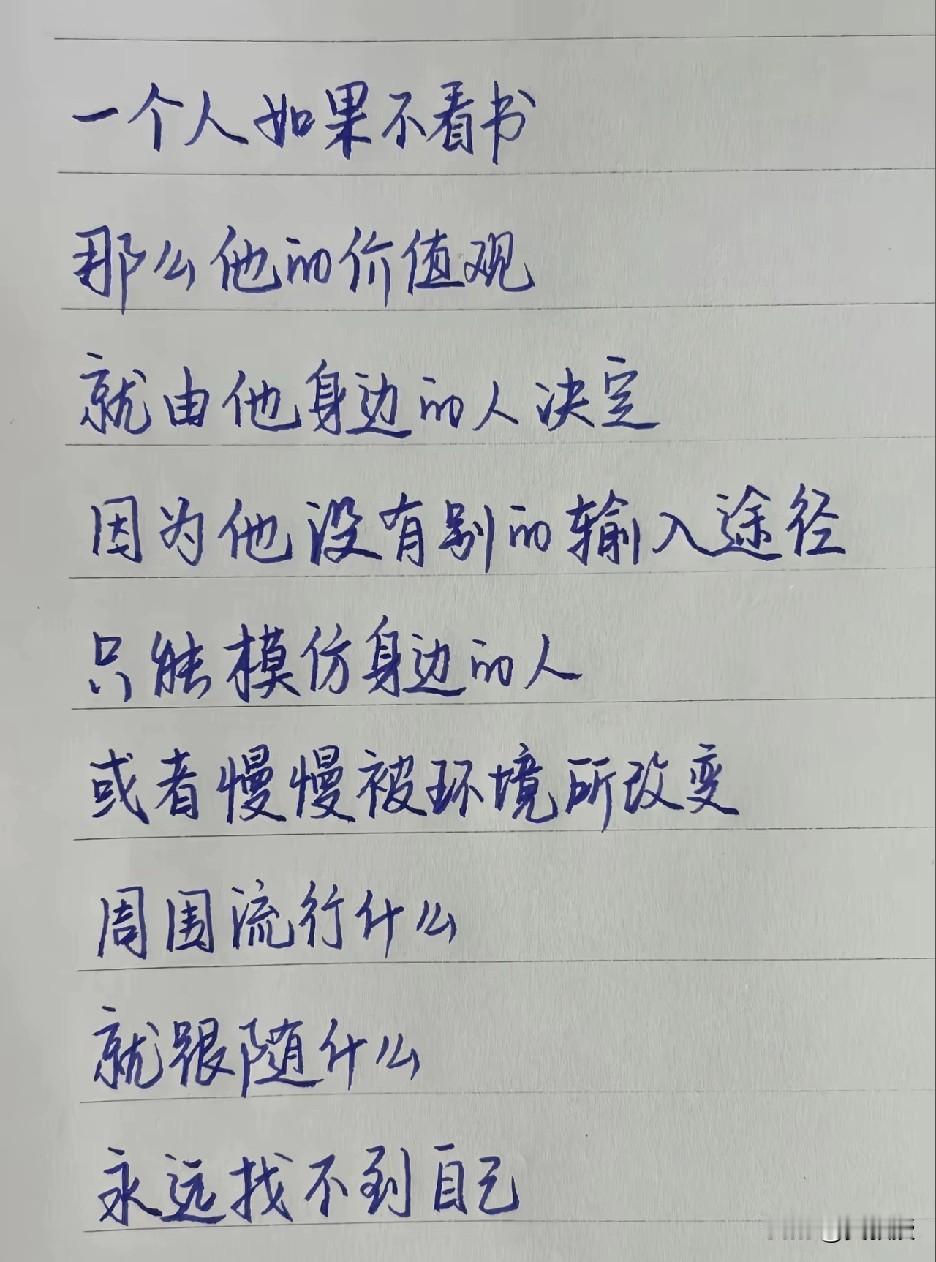 一个人如果不看书
那么他的价值观
就由他身边的人决定
因为他没有别的输入途径
只能模仿身边的人
或者慢慢被环境所改变
周围流行什么
就跟随什么
永远找不到自己